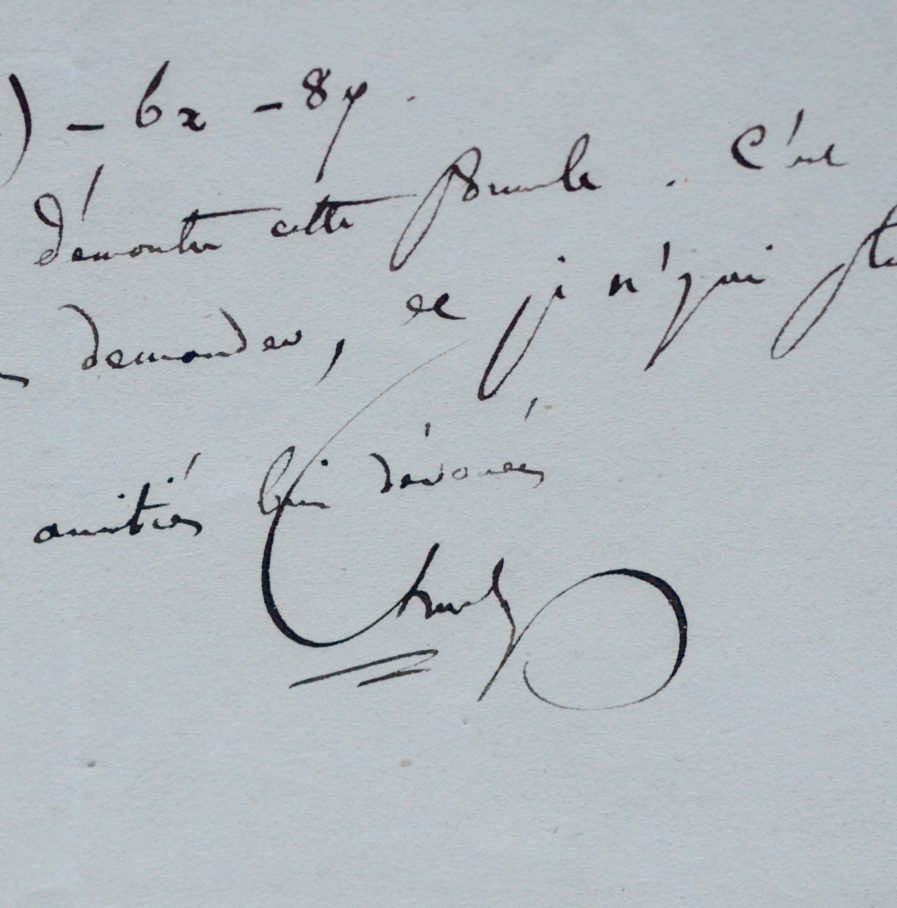 ) - 6x - 8y.
démontrer cette formule. C'est
demander, et je n'y ai
amitiés bien dévouées